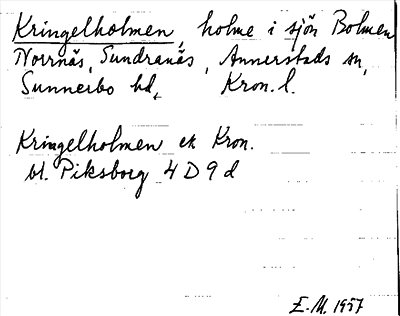 Kringelholmen, holme i sjön Bolmen
Norrnäs, Sundranäs, Annerstads sn,
Sunnerbo hd, Kron. l.
Kringelholmen ek Kron.
bl. Piksborg 4 D 9 d
E. M. 1957